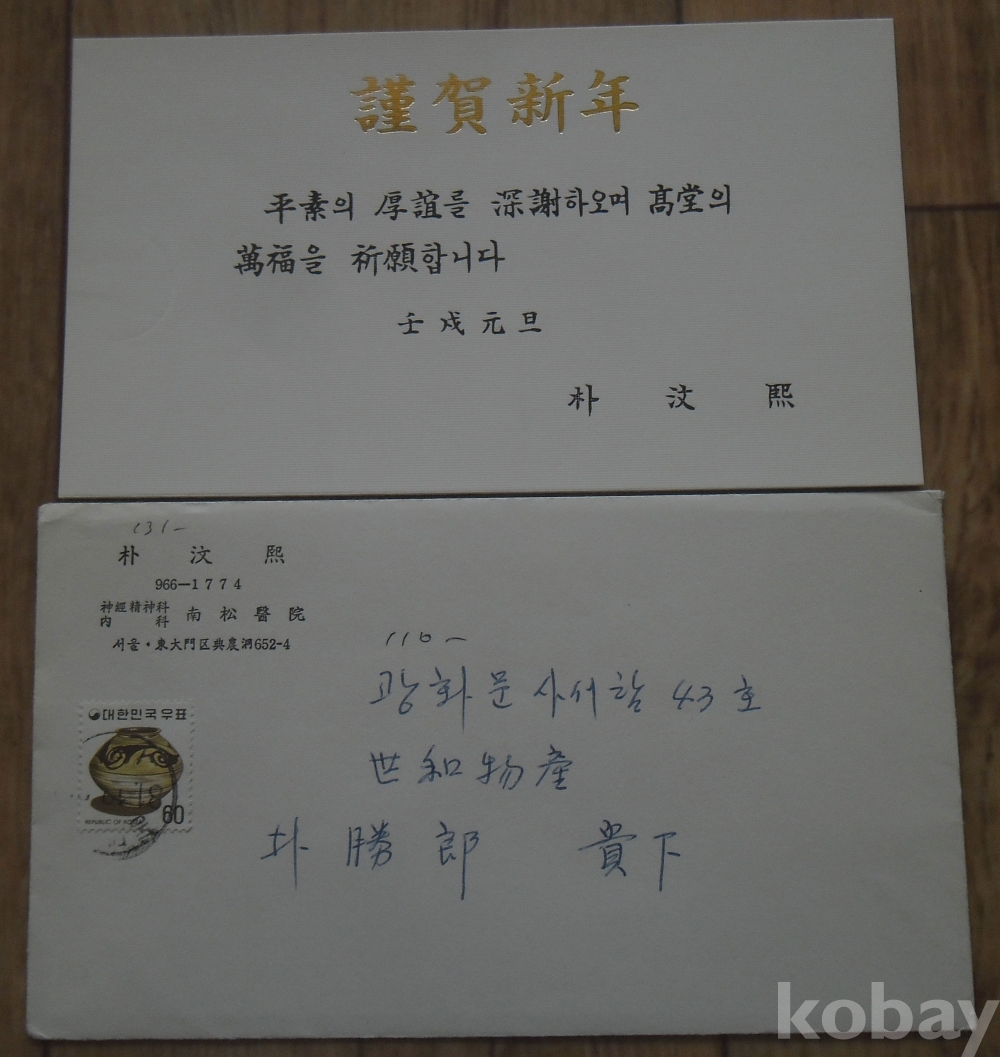 謹賀新年
平素의 厚誼를 深謝하오며 高堂의
萬福을 祈願합니다
壬戌元旦
朴 汶 熙
131-
朴 汶 熙
966-1774
神經精神科
内科 南松醫院
서울·東大門区典農洞652-4
대한민국우표
REPUBLIC OF KOREA
60
110-
광화문 사서함 43호
世和物産
朴 勝 郎 貴下
kobay